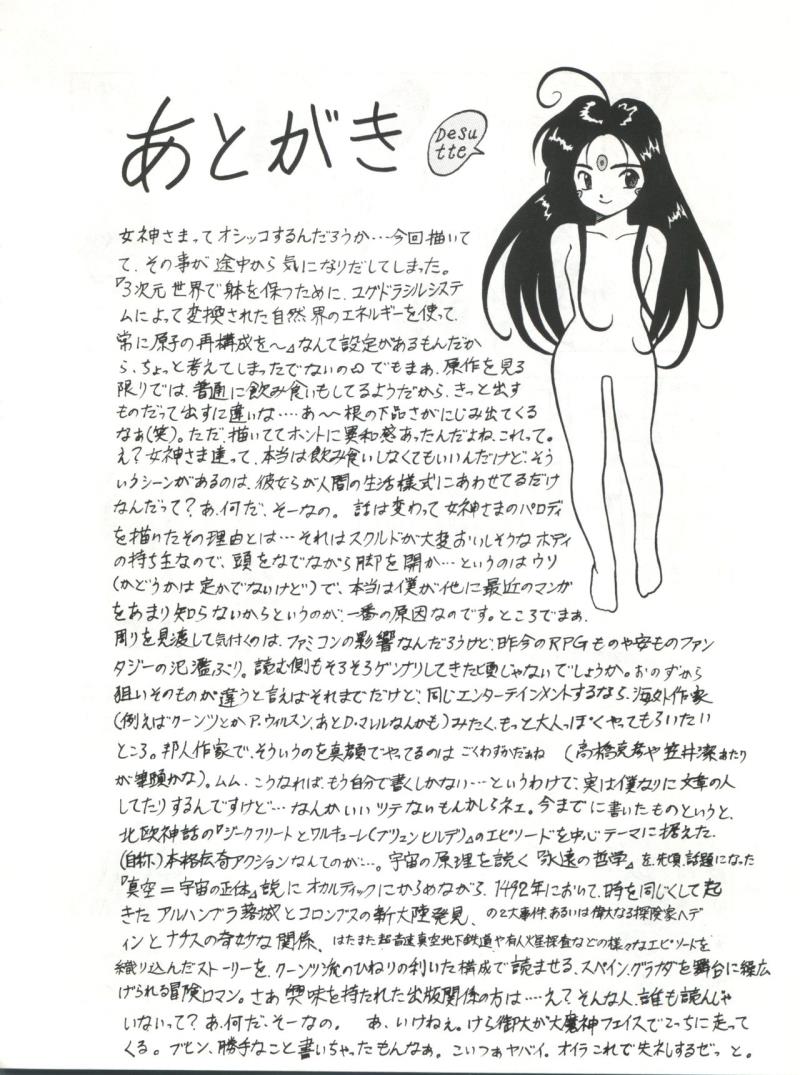 あとがき
Desu
tte
女神さまってオシッコするんだろうか…今回描いて
て、その事が途中から気になりだしてしまった。
『3次元世界で躰を保つために、ユグドラシルシステ
ムによって変換された自然界のエネルギーを使って、
常に原子の再構成を〜』なんて設定があるもんだか
ら、ちょっと考えてしまったでないの でもまぁ、原作を見る
限りでは、普通に飲み食いもしてるようだから、きっと出す
ものだって出すに違いな‥‥あ〜〜根の下品さがにじみ出てくる
なぁ(笑)。ただ、描いててホントに異和感あったんだよね、これって。
え?女神さま達って、本当は飲み食いしなくてもいいんだけど、そう
いうシーンがあるのは、彼女らが人間の生活様式にあわせてるだけ
なんだって?あ、何だ、そーなの。 話は変わって女神さまのパロディ
を描いたその理由とは…それはスクルドが大変おいしそうなボディ
の持ち主なので、頭をなでながら脚を開か…というのはウソ
(かどうかは定かでないけど)で、本当は僕が他に最近のマンガ
をあまり知らないからというのが、一番の原因なのです。ところでまぁ、
周りを見渡して気付くのは、ファミコンの影響なんだろうけど、昨今のRPGものや安ものファン
タジーの氾濫ぶり。読む側もそろそろゲンナリしてきた頃じゃないでしょうか。おのずから
狙いそのものが違うと言えばそれまでだけど、同じエンターテインメントするなら、海外作家
(例えばクーンツとかP.ウィルスン、あとD.マレルなんかも)みたく、もっと大人っぽくやってもらいたい
ところ。邦人作家で、そういうのを真顔でやってるのは ごくわずかだぁね (高橋克彦や笠井潔あたり
が筆頭かな)。ムム、こうなれば、もう自分で書くしかない…というわけで、実は僕なりに文章の人
してたりするんですけど…なんかいいツテないもんかしらネェ。今までに書いたものというと、
北欧神話の『ジークフリートとワルキューレ(ブリュンヒルデ)』のエピソードを中心テーマに据えた、
(自称)本格伝奇アクションなんてのが…。宇宙の原理を説く『永遠の哲学』を、先頃、話題になった
『真空=宇宙の正体』説にオカルティックにからめながら、1492年において、時を同じくして起
きたアルハンブラ落城とコロンブスの新大陸発見、の2大事件、あるいは偉大なる探険家ヘデ
ィンとナチスの奇妙な関係、はたまた超音速真空地下鉄道や有人火星探査などの様々なエピソードを
織り込んだストーリーを、クーンツ流のひねりの利いた構成で読ませる、スペイン、グラナダを舞台に繰広
げられる冒険ロマン。さぁ興味を持たれた出版関係の方は…え?そんな人、誰も読んじゃ
いないって?あ、何だ、そーなの。 あ、いけねぇ。けら御大が大魔神フェイスでこっちに走って
くる。ブヒン、勝手なこと書いちゃったもんなぁ。こいつぁヤバイ。オイラこれで失ネしするゼっ と。